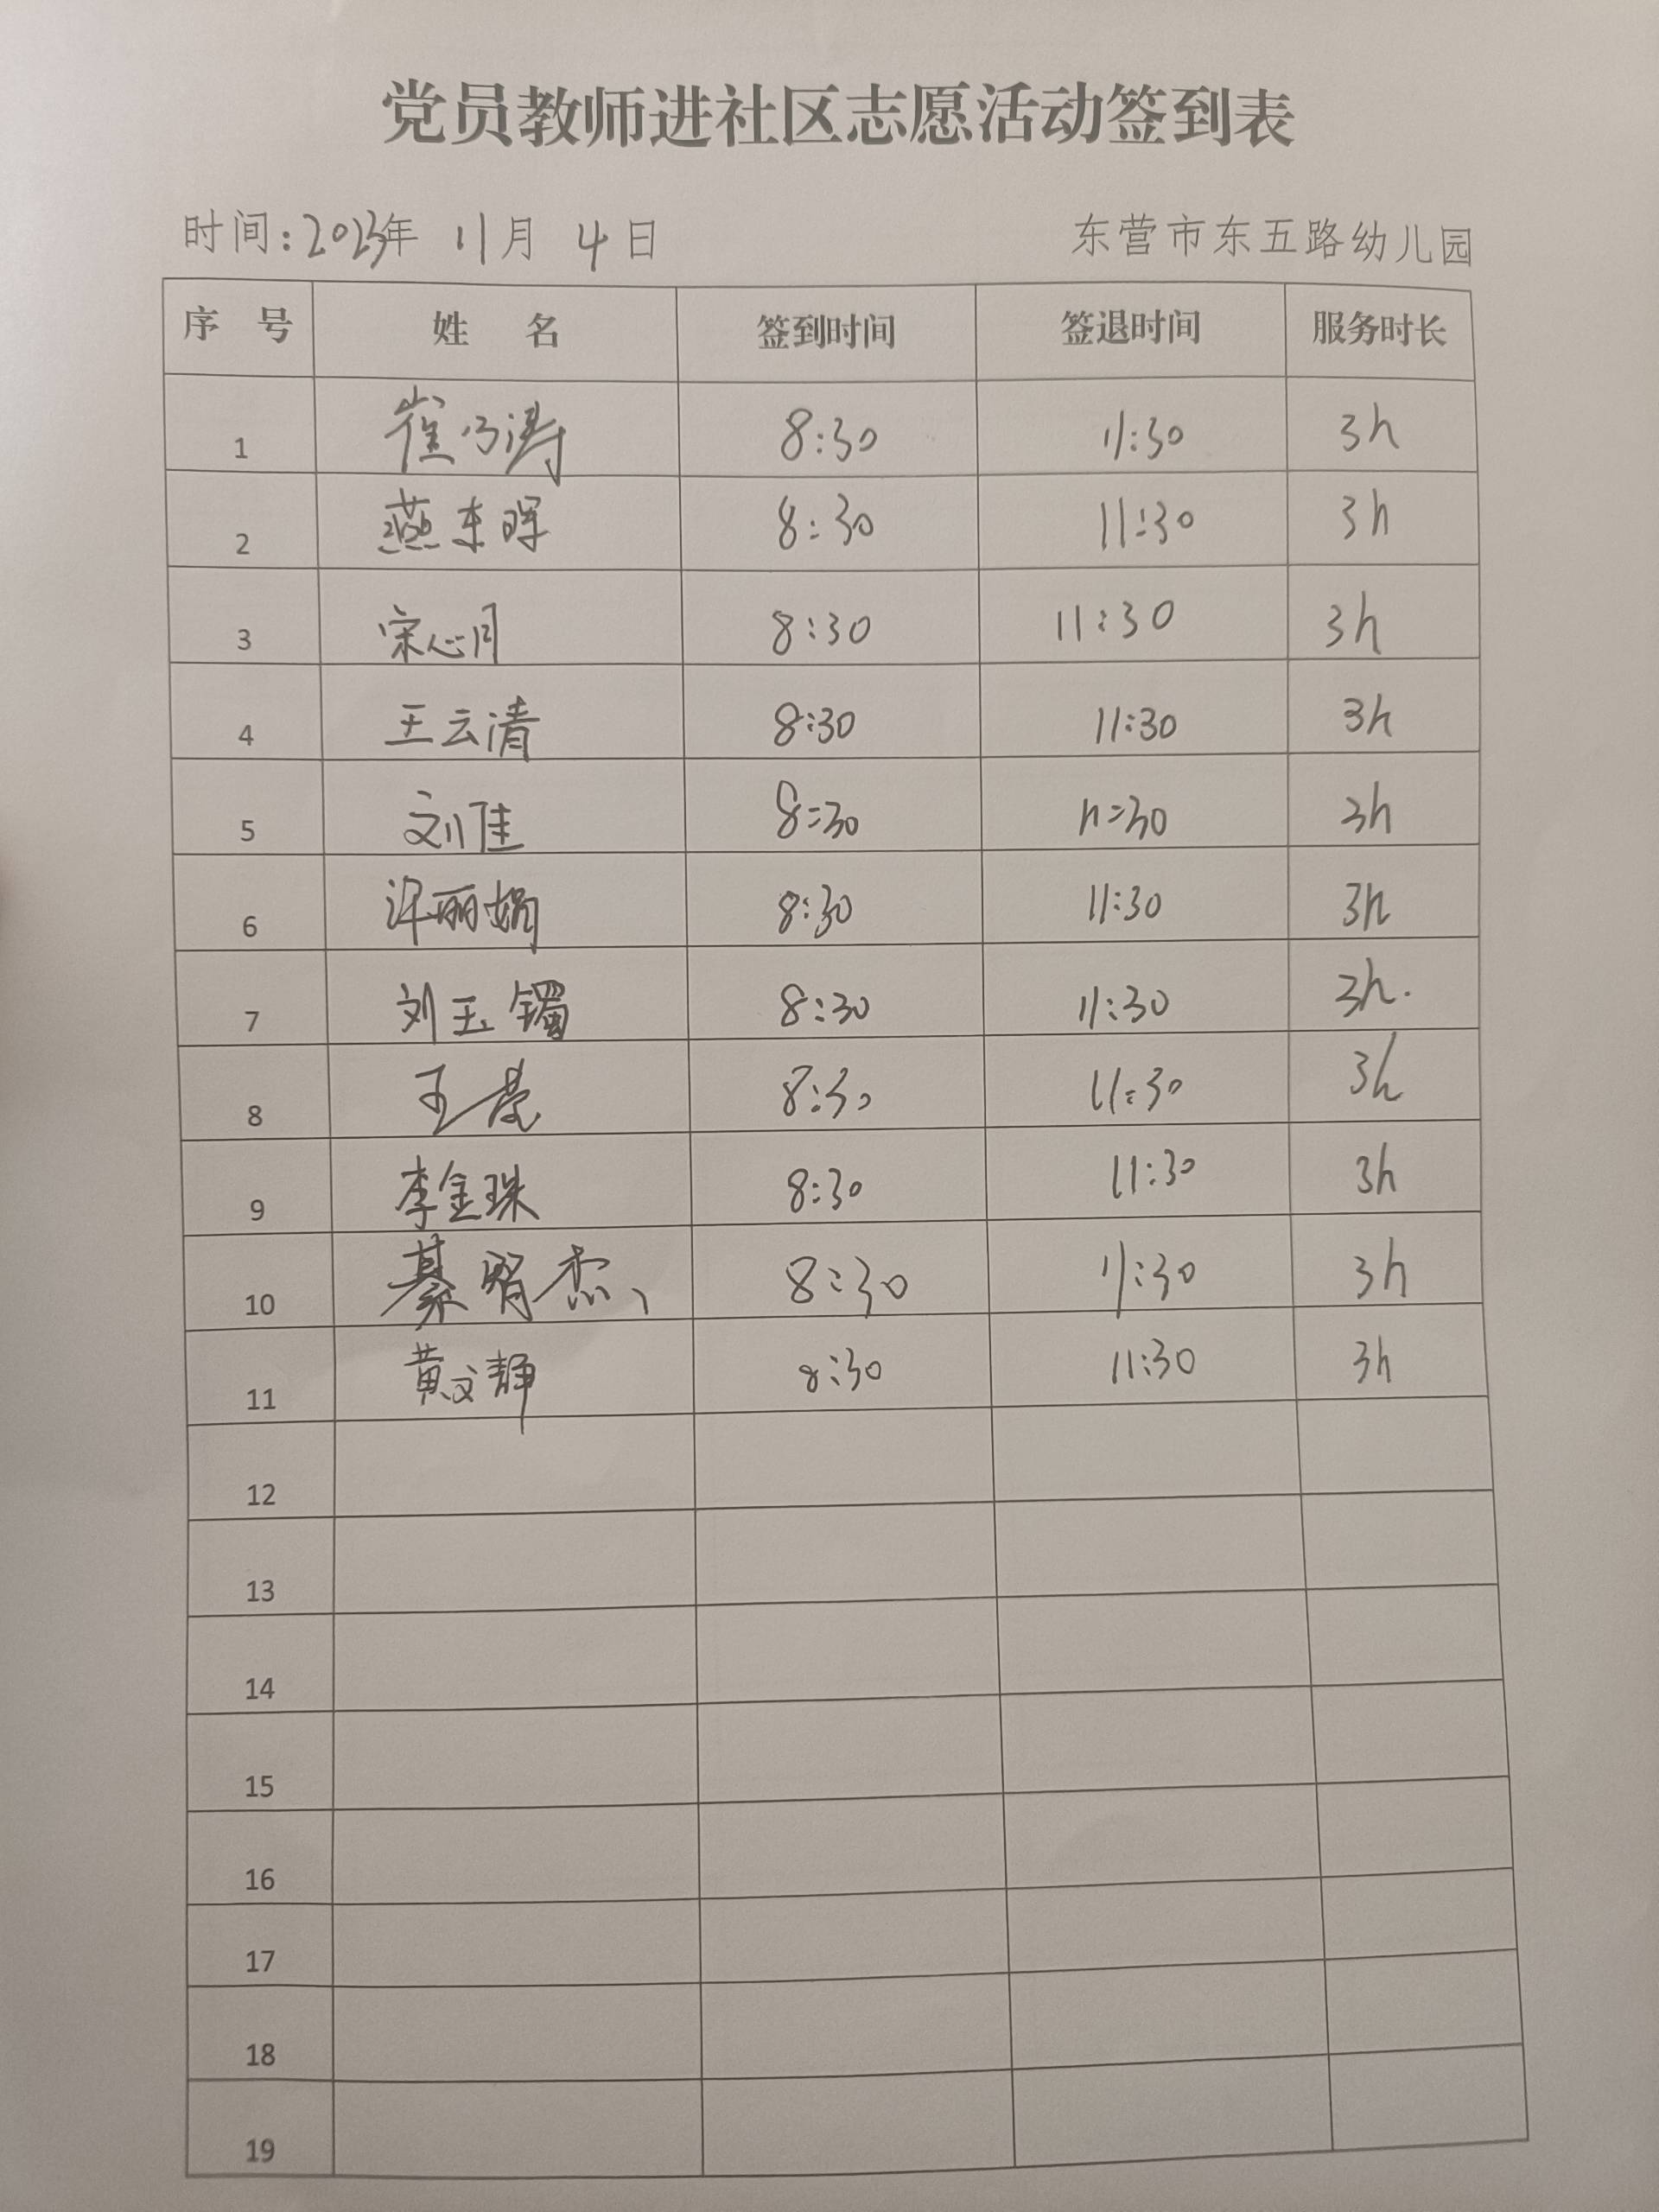 党员教师进社区志愿活动签到表
时间：2023年 11月 4日 东营市东五路幼儿园
序 号 姓 名 签到时间 签退时间 服务时长
1 崔乃涛 8:30 11:30 3h
2 燕东晖 8:30 11:30 3h
3 宋心月 8:30 11:30 3h
4 王云清 8:30 11:30 3h
5 刘佳 8:30 11:30 3h
6 许丽娟 8:30 11:30 3h
7 刘玉镯 8:30 11:30 3h.
8 王 8:30 11:30 3h
9 李金珠 8:30 11:30 3h
10 綦 杰 8:30 11:30 3h
11 黄文静 8:30 11:30 3h
12
13
14
15
16
17
18
19